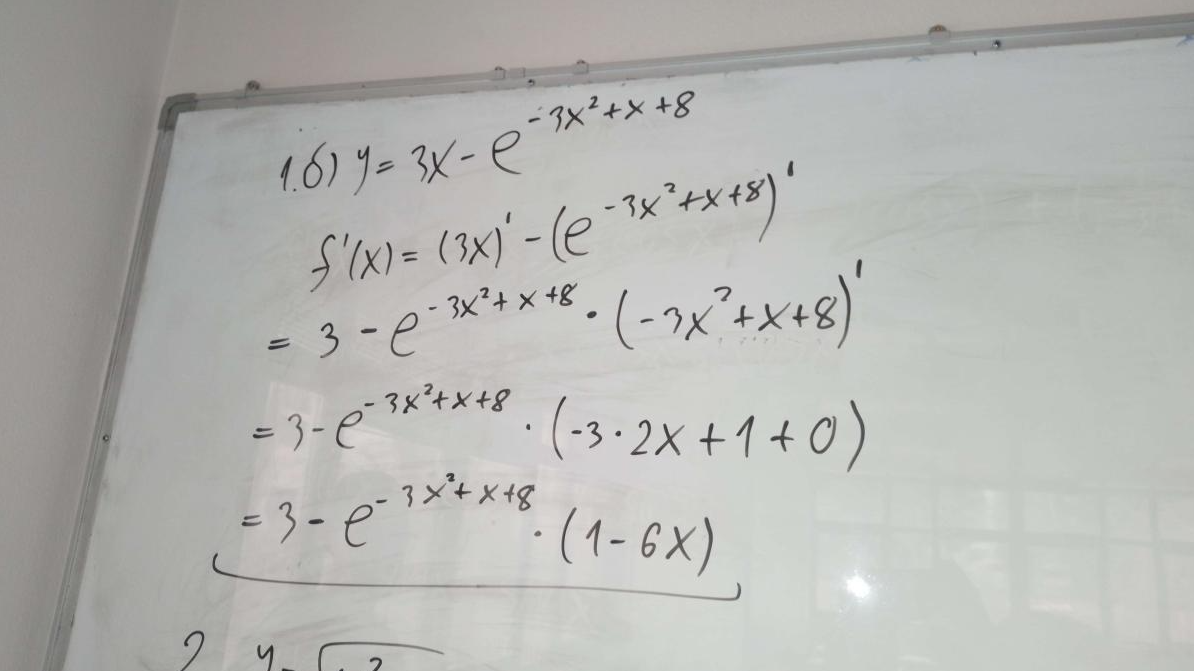 1.б) y = 3x - e^{-3x²+x+8}
f'(x) = (3x)' - (e^{-3x²+x+8})'
= 3 - e^{-3x²+x+8} · (-3x²+x+8)'
= 3 - e^{-3x²+x+8} · (-3·2x+1+0)
= 3 - e^{-3x²+x+8} · (1-6x)
2